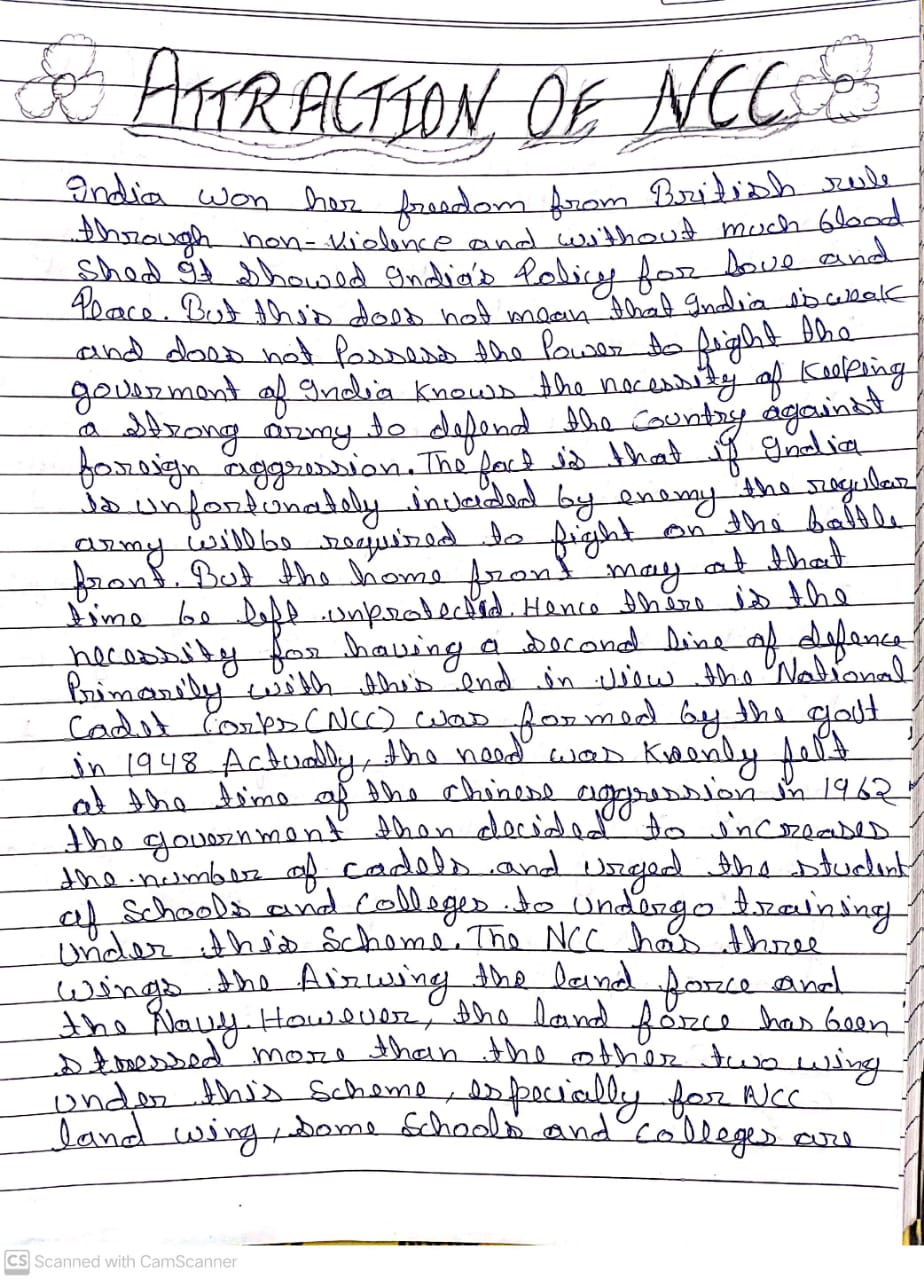 ATTRACTION OF NCC
India won her freedom from British rule
through non-violence and without much blood
shed It showed India's Policy for love and
Peace. But this does not mean that India is weak
and does not Possess the Power to fight the
goverment of India knows the necessity of Keeping
a strong army to defend the Country against
foreign aggression. The fact is that if India
is unfortunately invaded by enemy the regular
army will be required to fight on the battle
front. But the home front may at that
time be left unprotected. Hence there is the
necessity for having a second line of defence
Primarily with this end in view the National
Cadet Corps (NCC) was formed by the govt
in 1948 Actually, the need was Keenly felt
at the time of the chinese aggression in 1962
the government then decided to increases
the number of cadets and urged the student
of Schools and Colleges to undergo training
under this Scheme. The NCC has three
wings the Airwing the land force and
the Navy. However, the land force has been
stressed more than the other two wing
under this Scheme, especially for NCC
land wing, some Schools and Colleges are
CS Scanned with CamScanner